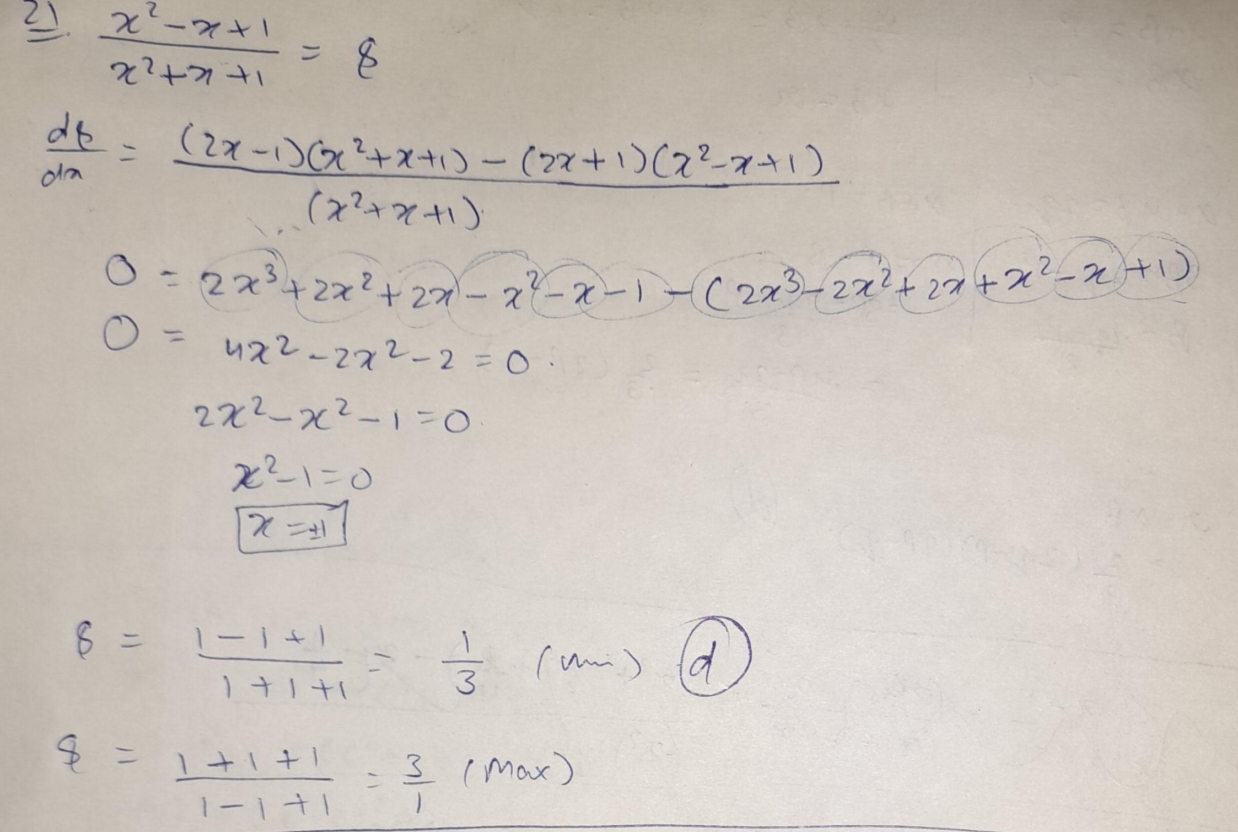 21. (x²-x+1)/(x²+x+1) = 8
d8/dx = ((2x-1)(x²+x+1) - (2x+1)(x²-x+1))/(x²+x+1)
0 = 2x³+2x²+2x-x²-x-1-(2x³-2x²+2x+x²-x+1)
0 = 4x²-2x²-2=0.
2x²-x²-1=0
x²-1=0
x=±1
8 = (1-1+1)/(1+1+1) = 1/3 (min) d
8 = (1+1+1)/(1-1+1) = 3/1 (Max)